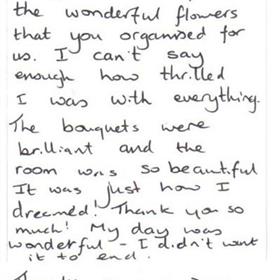 the wonderful flowers
that you organised for
us. I can't say
enough how thrilled
I was with everything.
The bouquets were
brilliant and the
room was so beautiful
It was just how I
dreamed! Thank you so
much! My day was
wonderful - I didn't want
it to end.